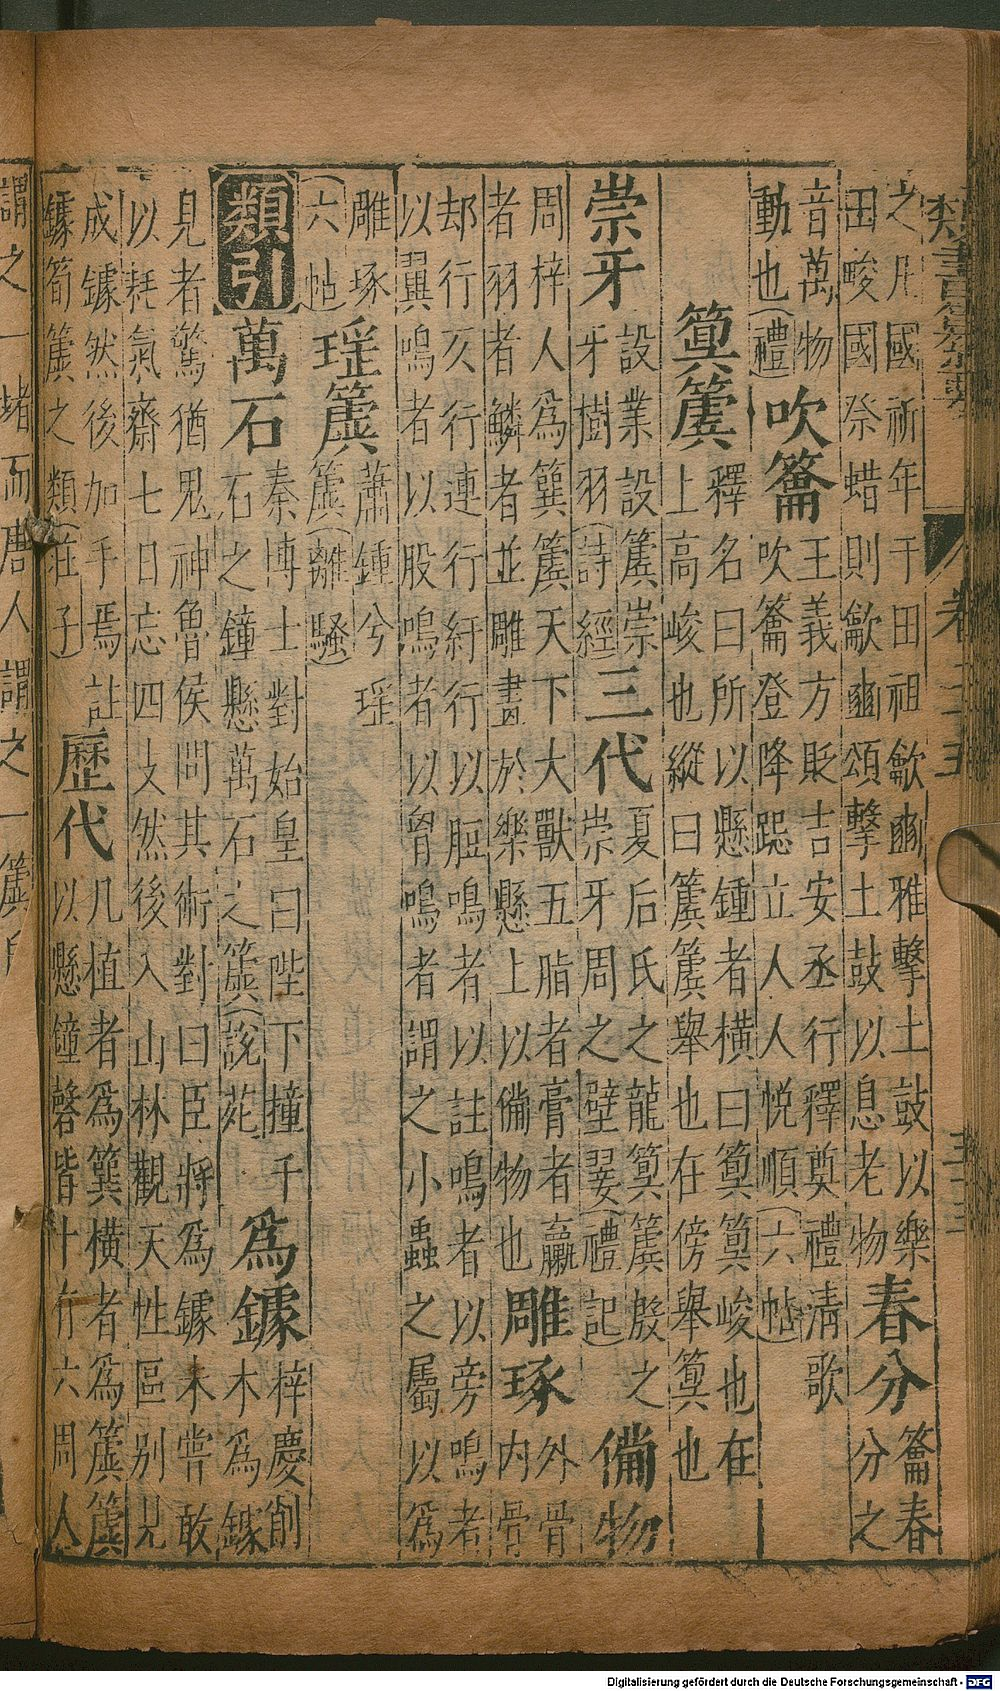 類書
卷
之凡國祈年于田祖龡豳雅擊土鼓以樂
田畯國祭蜡則龡豳頌擊土鼓以息老物
春分
籥春
分之
音萬物
動也(禮)
吹籥
王義方貶吉安丞行釋奠禮清歌
吹籥登降跽立人人悅順(六帖)
簨簴
釋名曰所以懸鍾者橫曰簨簨峻也在
上高峻也縱曰簴簴舉也在傍舉簨也
崇牙
設業設簴崇
牙樹羽(詩經)
三代
夏后氏之龍簨簴殷之
崇牙周之璧翣(禮記)
備物
周梓人為簨簴天下大獸五脂者膏者臝
者羽者鱗者並雕畫於樂懸上以備物也
雕琢
外骨
内骨
却行仄行連行紆行以脰鳴者以註鳴者以旁鳴者
以翼鳴者以股鳴者以胷鳴者謂之小蟲之屬以為
雕琢
六帖)
瑶簴
蕭鍾兮瑶
簴(離騷)
類引
萬石
秦博士對始皇曰陛下撞千
石之鐘懸萬石之簴(說苑)
為鐻
梓慶削
木為鐻
見者驚猶鬼神魯侯問其術對曰臣將為鐻未甞敢
以耗氣齋七日忘四支然後入山林觀天性區別見
成鐻然後加手焉註
鐻筍簴之類(莊子)
歷代
凡植者為簨橫者為簴簴
以懸鐘磬皆十有六周人
謂之一堵而唐人謂之一簴
Digitalisierung gefördert durch die Deutsche Forschungsgemeinschaft - DFG